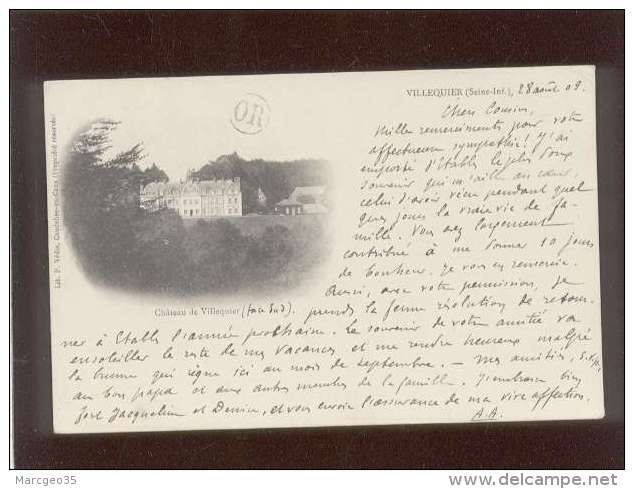 VILLEQUIER (Seine-Inf.), 28 août 09.
Chers Cousins,
Mille remerciements pour votre
affectueuse sympathie! J'ai
emporté d'Etables le plus doux
souvenir qui m'aille au cœur,
celui d'avoir vécu pendant quel
ques jours la vraie vie de fa-
mille. Vous avez largement
contribué à me donner 10 jours
de bonheur. Je vous en remercie.
Aussi, avec votre permission, je
prends la ferme résolution de retour-
ner à Etables l'année prochaine. Le souvenir de votre amitié va
ensoleiller le reste de mes vacances et me rendre heureux malgré
la brume qui règne ici au mois de septembre. - Mes amitiés, s.v.p.,
au bon papa et aux autres membres de la famille. J'embrasse bien
fort Jacqueline et Denise, et vous envoie l'assurance de ma vive affection.
A.A.
Château de Villequier (face Sud).
OR
Lib. F. Védie, Caudebec-en-Caux (Propriété réservée)
Marcgeo35
www.delcampe.net